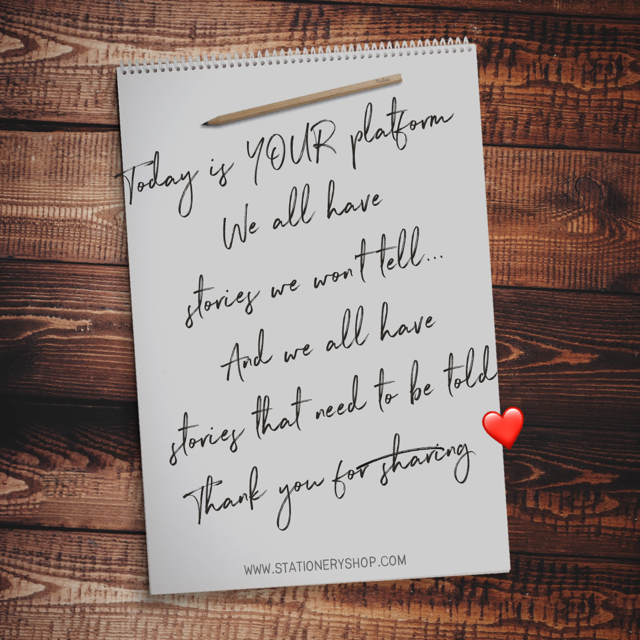 Today is YOUR platform
We all have
stories we won't tell...
And we all have
stories that need to be told
Thank you for sharing
WWW.STATIONERYSHOP.COM